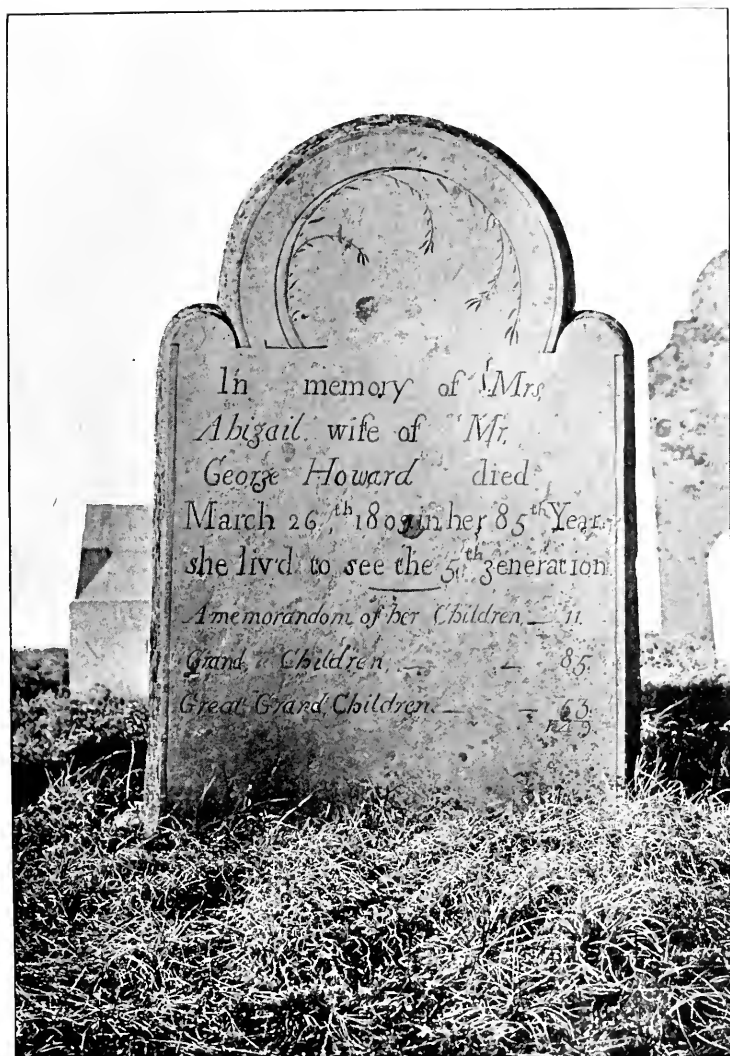 In memory of Mrs,
Abigail wife of Mr,
George Howard died
March 26,th 1809 in her 85th Year.
she liv'd to see the 5th generation
A memorandom of her Children, — 11.
Grand, Children, — — 85.
Great Grand, Children. — — 63.